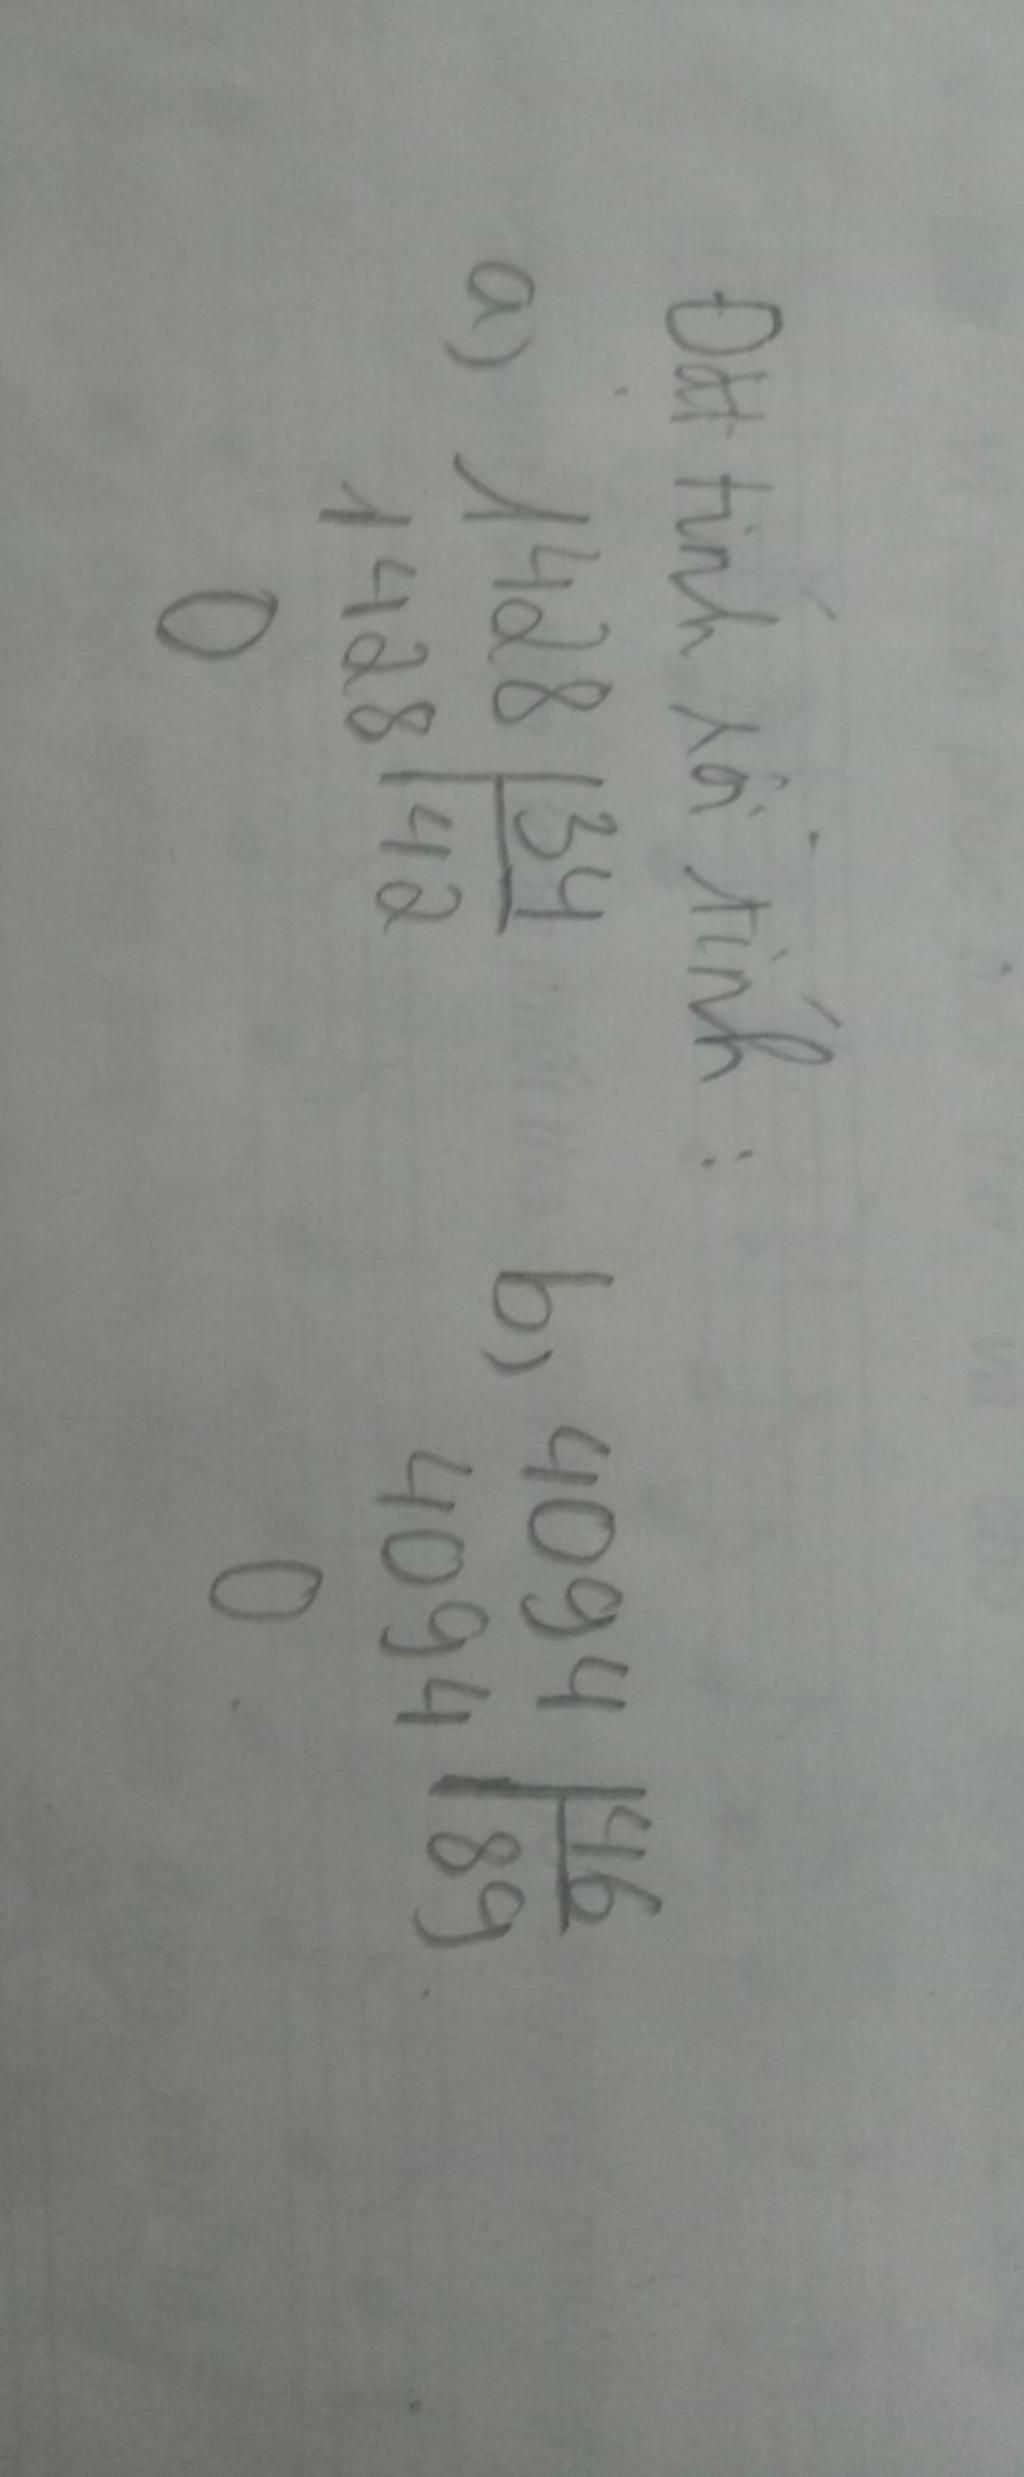 Đặt tính rồi tính :
a) 1428 34 b) 4094 46
1428 42 4094 89
0 0